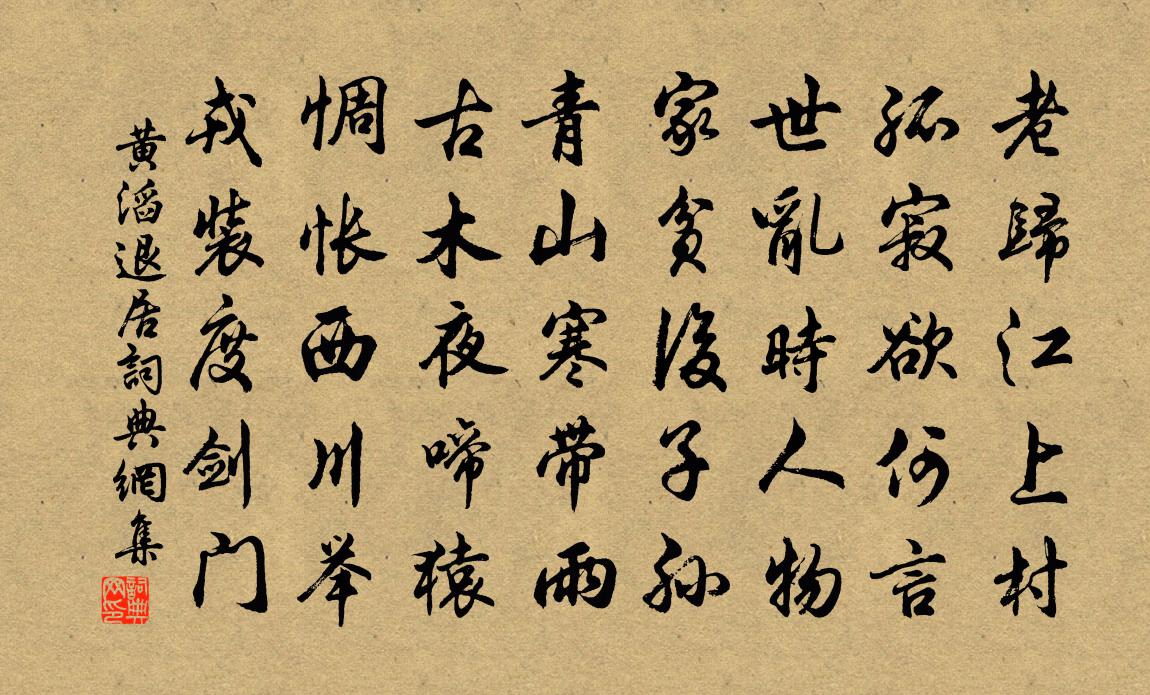 老歸江上村
孤寂欲何言
世亂時人物
家貧後子孫
青山寒帶雨
古木夜啼猿
惆悵西川举
戎裝度劍門
黄滔退居詞典網集
詞典网印